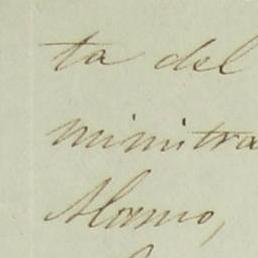 ta del
ministra
Alamo,